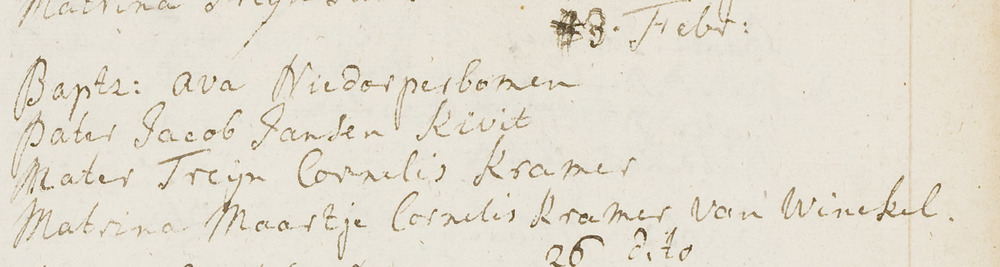 Matrina Treijn
23. Febr:
Baptz: Ava Niedorperbomen
Pater Jacob Jansen Kivit
Mater Treijn Cornelis Kramer
Matrina Maartje Cornelis Kramer van Winckel.
26 dito